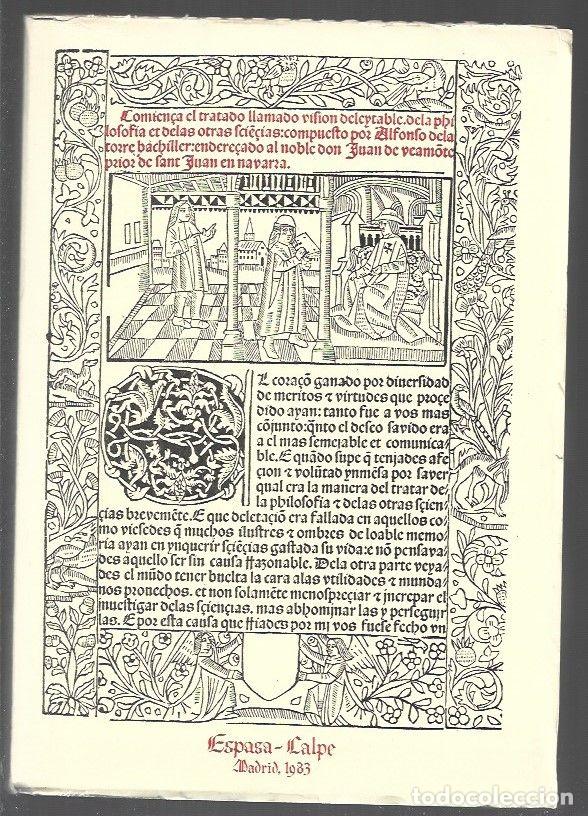 Comiença el tratado llamado vision deleytable. dela phi
losofia et delas otras sciẽçias: compuesto por Alfonso dela
torre bachiller: endereçado al noble don Juan de veamõte
prior de sant Juan en navarra.
L coraçõ ganado por diversidad
de meritos ⁊ virtudes que proçe
dido ayan: tanto fue a vos mas
cõjunto: q̃nto el deseo savido era
a el mas semejable et comunica-
ble. E quãdo supe q̃ tenjades afe
çion ⁊ volũtad ynmẽsa por saver
qual era la manera del tratar de
la philosofia ⁊ delas otras sçien-
çias brevemẽte. E que deletaçiõ era fallada en aquellos co
mo viesedes q̃ muchos ilustres ⁊ ombres de loable memo
ria ayan en ynquerir sçiẽçias gastada su vida: e nõ pensava
des aquello ser sin causa rrazonable. Dela otra parte veya
des el mũdo tener buelta la cara alas vtilidades ⁊ munda
nos provechos. et non solamẽte menospreçiar ⁊ increpar el
investigar delas sçiençias. mas abhominar las y perseguir
las. E por esta causa que rriades por mi vos fuese fecho vn
Espasa-Calpe
Madrid, 1983
todocoleccion